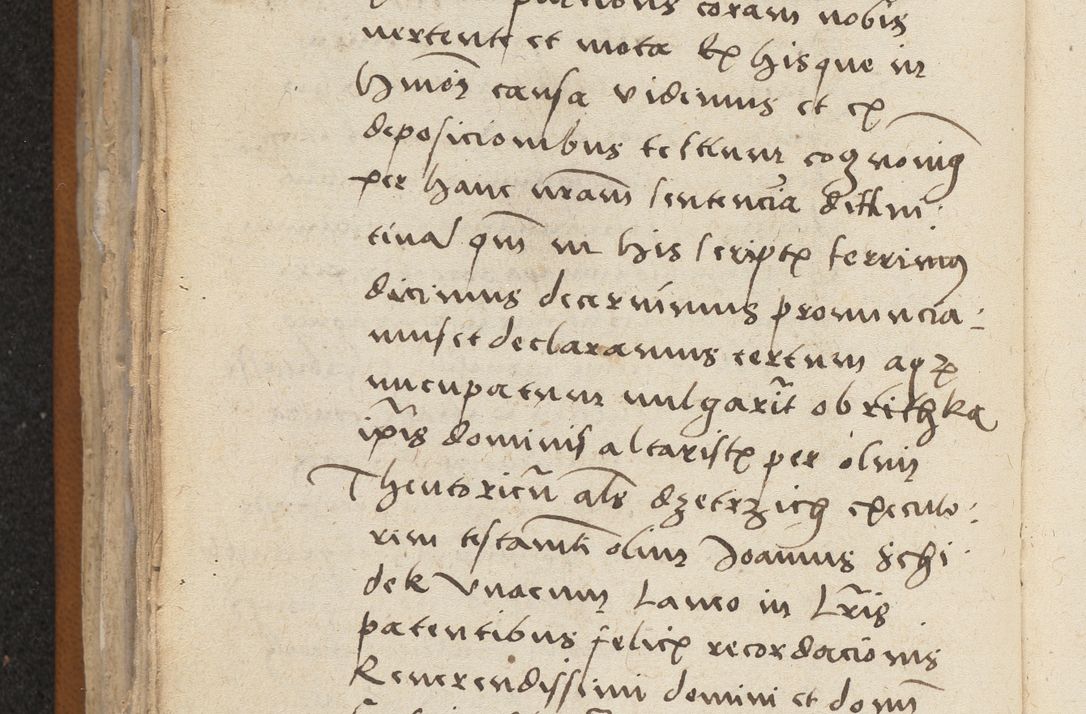 coram nobis
vertente et mota Ex hisque in
hmōi causa vidimus et ex
deposicionibus testium cognouimus
per hanc nram̄ sentenciā diffini:
tiuā qm̄ in his scriptis ferrimus
dicimus decernimus pronuncia:
mus et declaramus certum agr
nucupatum uulgarīt obrithka
ip̄is dominis altaristis per olim
Theutoricū als dzetrzich executo:
rem testam̄ti olim Joannis Schi
dek Vnacum Laneo in Lrīs
patentibus felicis recordacionis
Reuerendissimi domini et domī